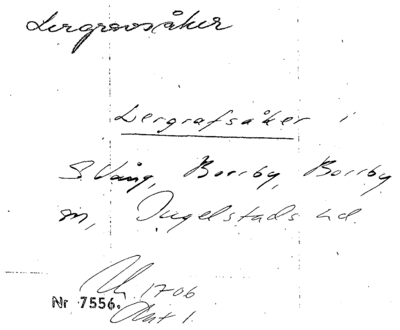 Lergravsåker
Lergrafsåker i
S. Vång, Borrby, Borrby
sn, Ingelstads hd
Lh. 1706
Nr 7556. Akt 1.